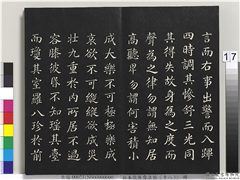 言而右事出警而入蹕
四時調其慘舒三光同
其得失故身為之度而
聲為之律勿謂無知居
高聽卑勿謂何害積小
成大樂不可極極樂成
哀欲不可縱縱欲成災
壯九重於內所居不過
容膝彼昏不知瑤其臺
而瓊其室羅八珍於前
17